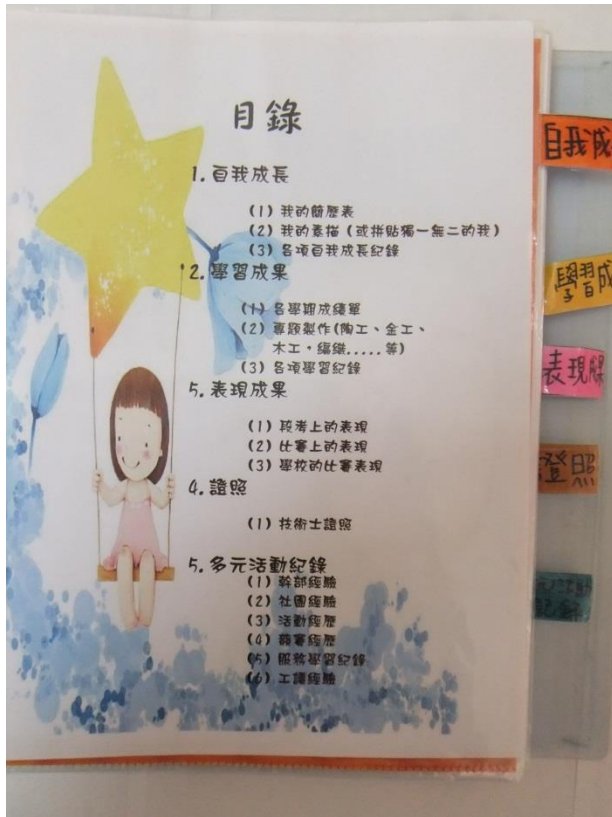 目錄
1. 自我成長
(1) 我的簡歷表
(2) 我的素描(或拼貼獨一無二的我)
(3) 各項自我成長紀錄
2. 學習成果
(1) 各學期成績單
(2) 專題製作(陶工、金工、
木工、編織.....等)
(3) 各項學習紀錄
5. 表現成果
(1) 段考上的表現
(2) 比賽上的表現
(3) 學校的比賽表現
4. 證照
(1) 技術士證照
5. 多元活動紀錄
(1) 幹部經驗
(2) 社團經驗
(3) 活動經歷
(4) 競賽經歷
(5) 服務學習紀錄
(6) 工讀經驗
自我成
學習成
表現成果
證照
元活動
記錄